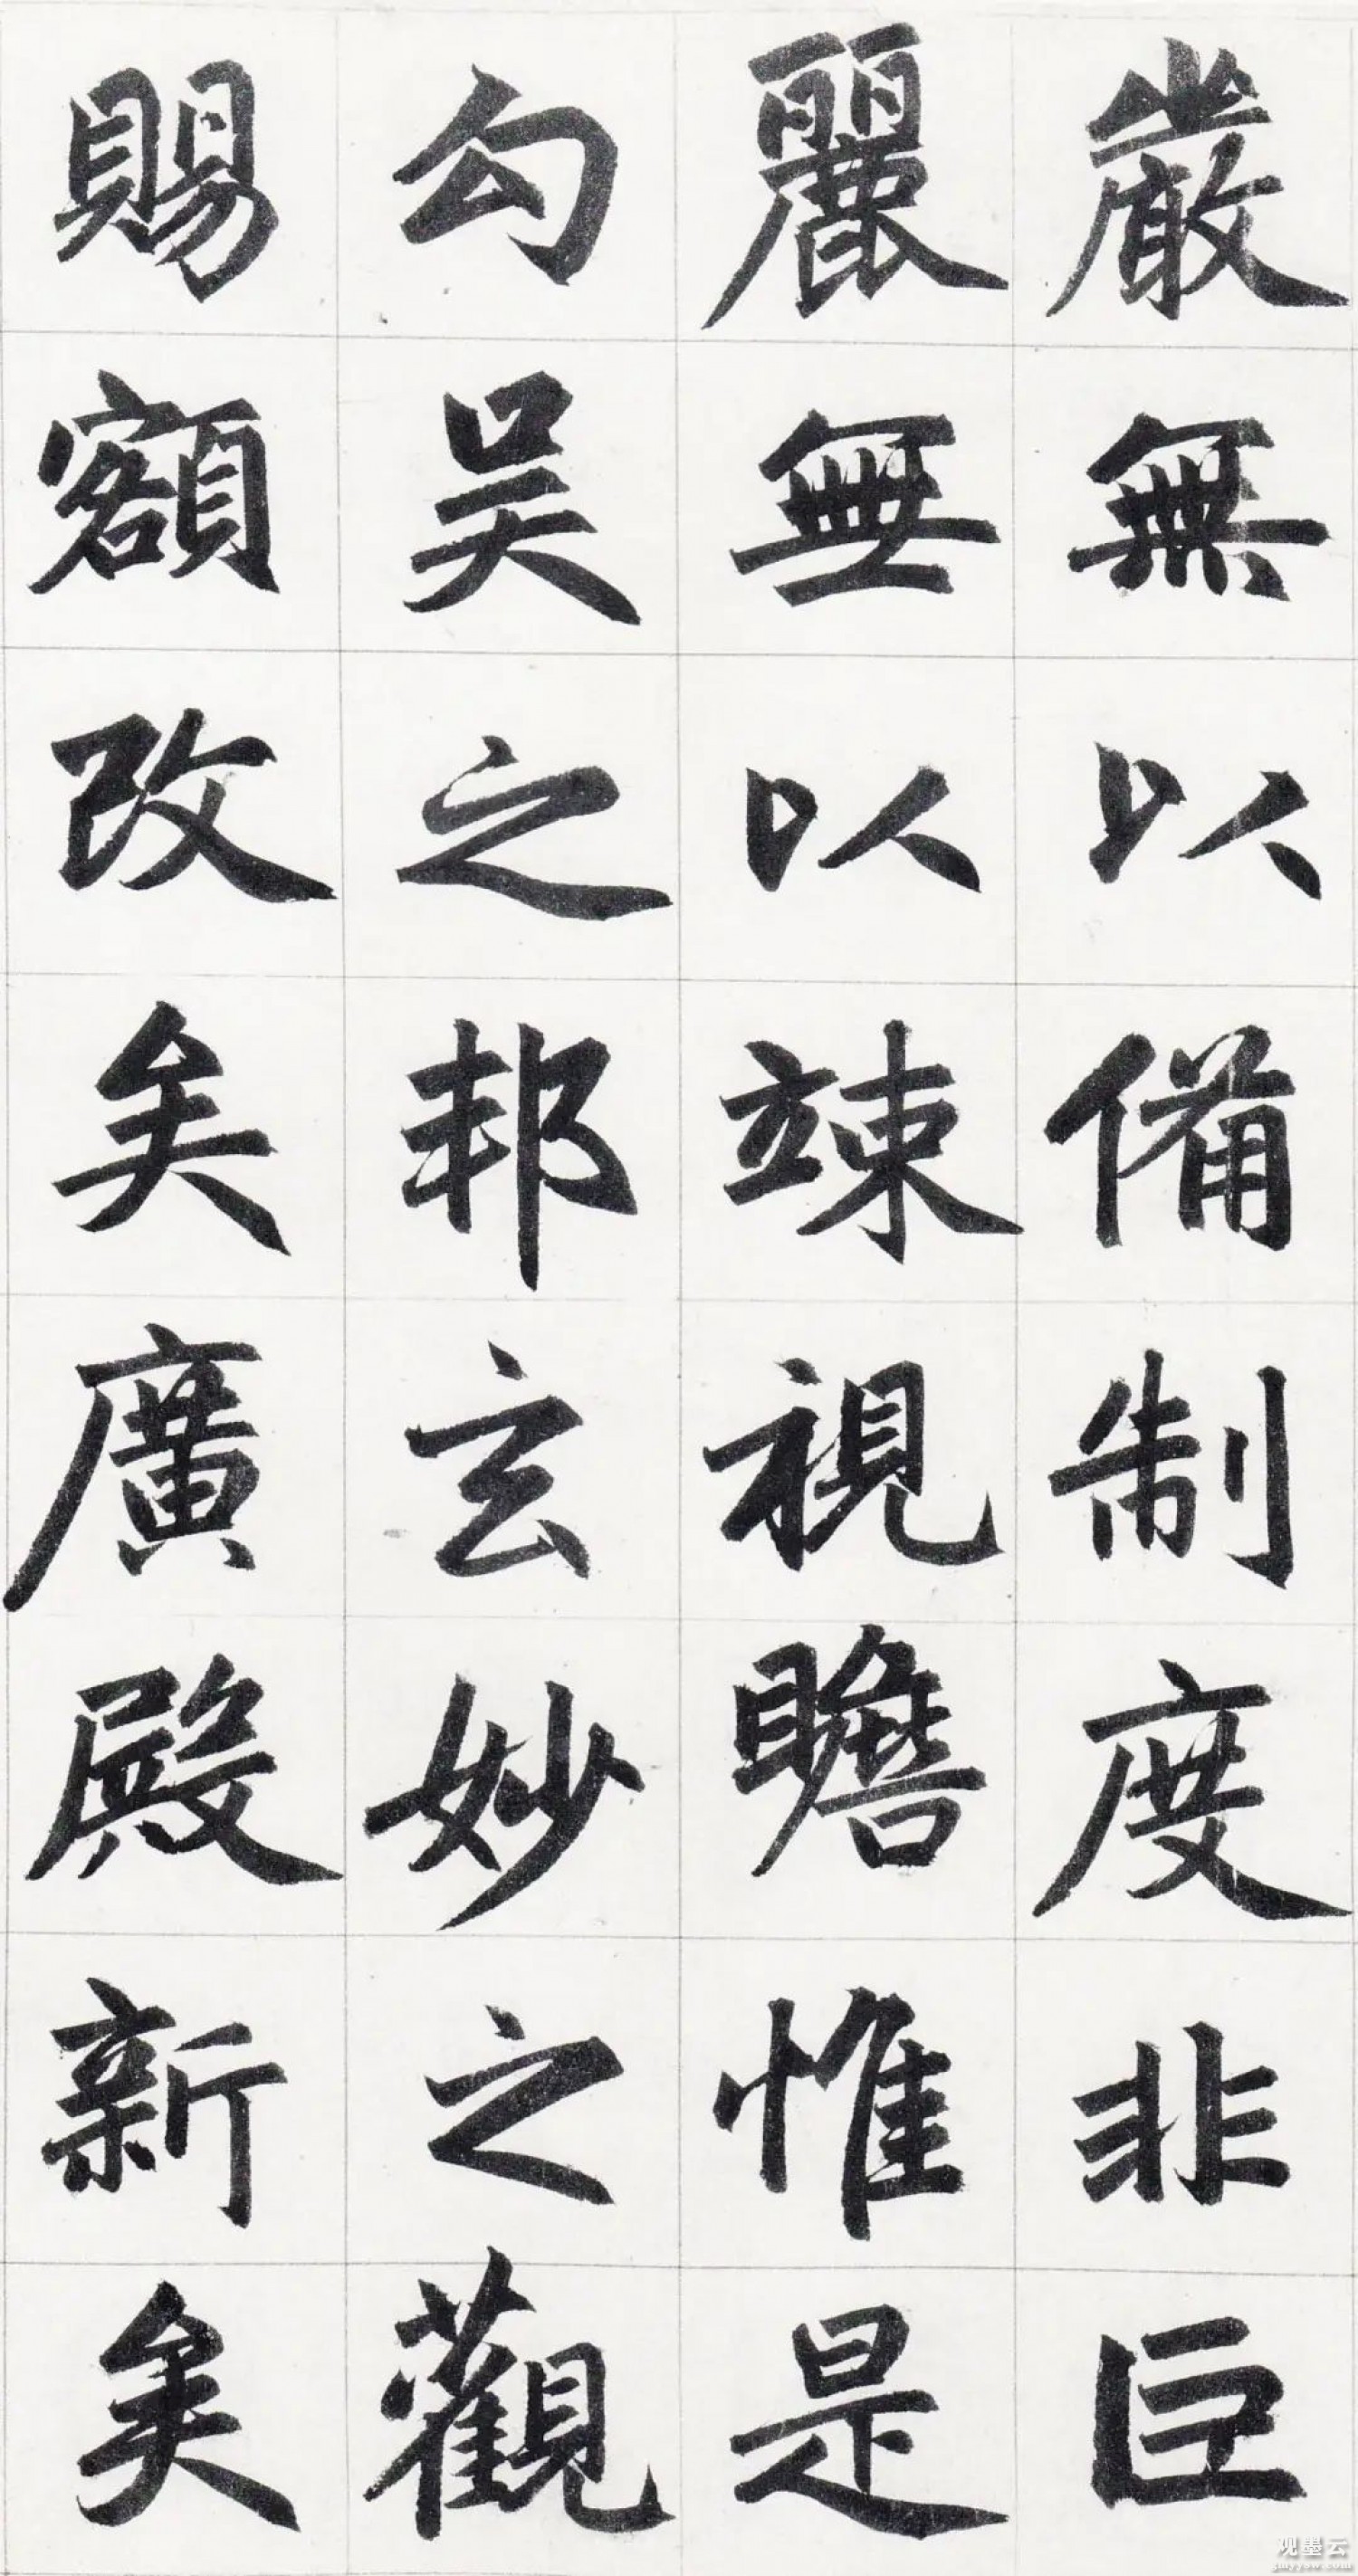 嚴無以備制度非巨
麗無以竦視瞻惟是
勾吴之邦玄妙之觀
賜額改矣廣殿新矣
观墨云